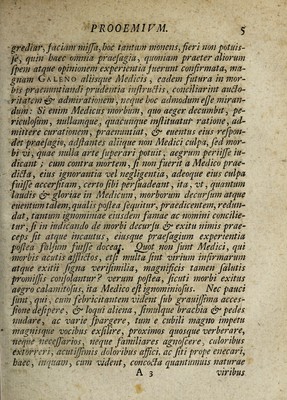 PROOEMIVM. 5
grediar, faciam missa, hoc tantum monens, fieri non potuis-
se, quin haec omnia praesagia, quoniam praeter aliorum
spem atque opinionem experientia fuerunt confirmata, ma-
gnam GALENO aliisque Medicis, eadem futura in mor-
bis praenuntiandi prudentia instructis, conciliarint aucto-
ritatem & admirationem, neque hoc admodum esse miran-
dum: Si enim Medicus morbum, quo aeger decumbit, pe-
riculosum, nullamque, quacunque instituatur ratione, ad-
mittere curationem, praenuntiat, & euentus eius respon-
det praesagio, adstantes aliique non Medici culpa, sed mor-
bi vi, quae nulla arte superari potuit, aegrum periisse iu-
dicant: cum contra mortem, si non fuerit a Medico prae-
dicta, eius ignorantia vel negligentia, adeoque eius culpa
fuisse accersitam, certo sibi persuadeant, ita, vt, quantum
laudis & gloriae in Medicum, morborum decursum atque
euentum talem, qualis postea sequitur, praedicentem, redun-
dat, tantum ignominiae eiusdem famae ac nomini concilie-
tur, si in iudicando de morbi decursu & exitu nimis prae-
ceps sit atque incautus, eiusque praesagium experientia
postea falsum fuisse doceat. Quot non sunt Medici, qui
morbis acutis afflictos, etsi multa sint virium infirmarum
atque exitii signa verisimilia, magnificis tamen salutis
promissis consolantur? verum postea, sicuti morbi exitus
aegro calamitosus, ita Medico est ignominiosus. Nec pauci
sunt, qui, cum febricitantem vident sub grauissima acces-
sione desipere, & loqui aliena, simulque brachia & pedes
nudare, ac varie spargere, tum e cubili magno impetu
magnisque vocibus exsilire, proximos quosque verberare,
neque necessarios, neque familiares agnoscere, caloribus
extorreri, acutissimis doloribus affici, ac siti prope enecari,
haec, inquam, cum vident, concocta quantumuis naturae
A 3 viribus